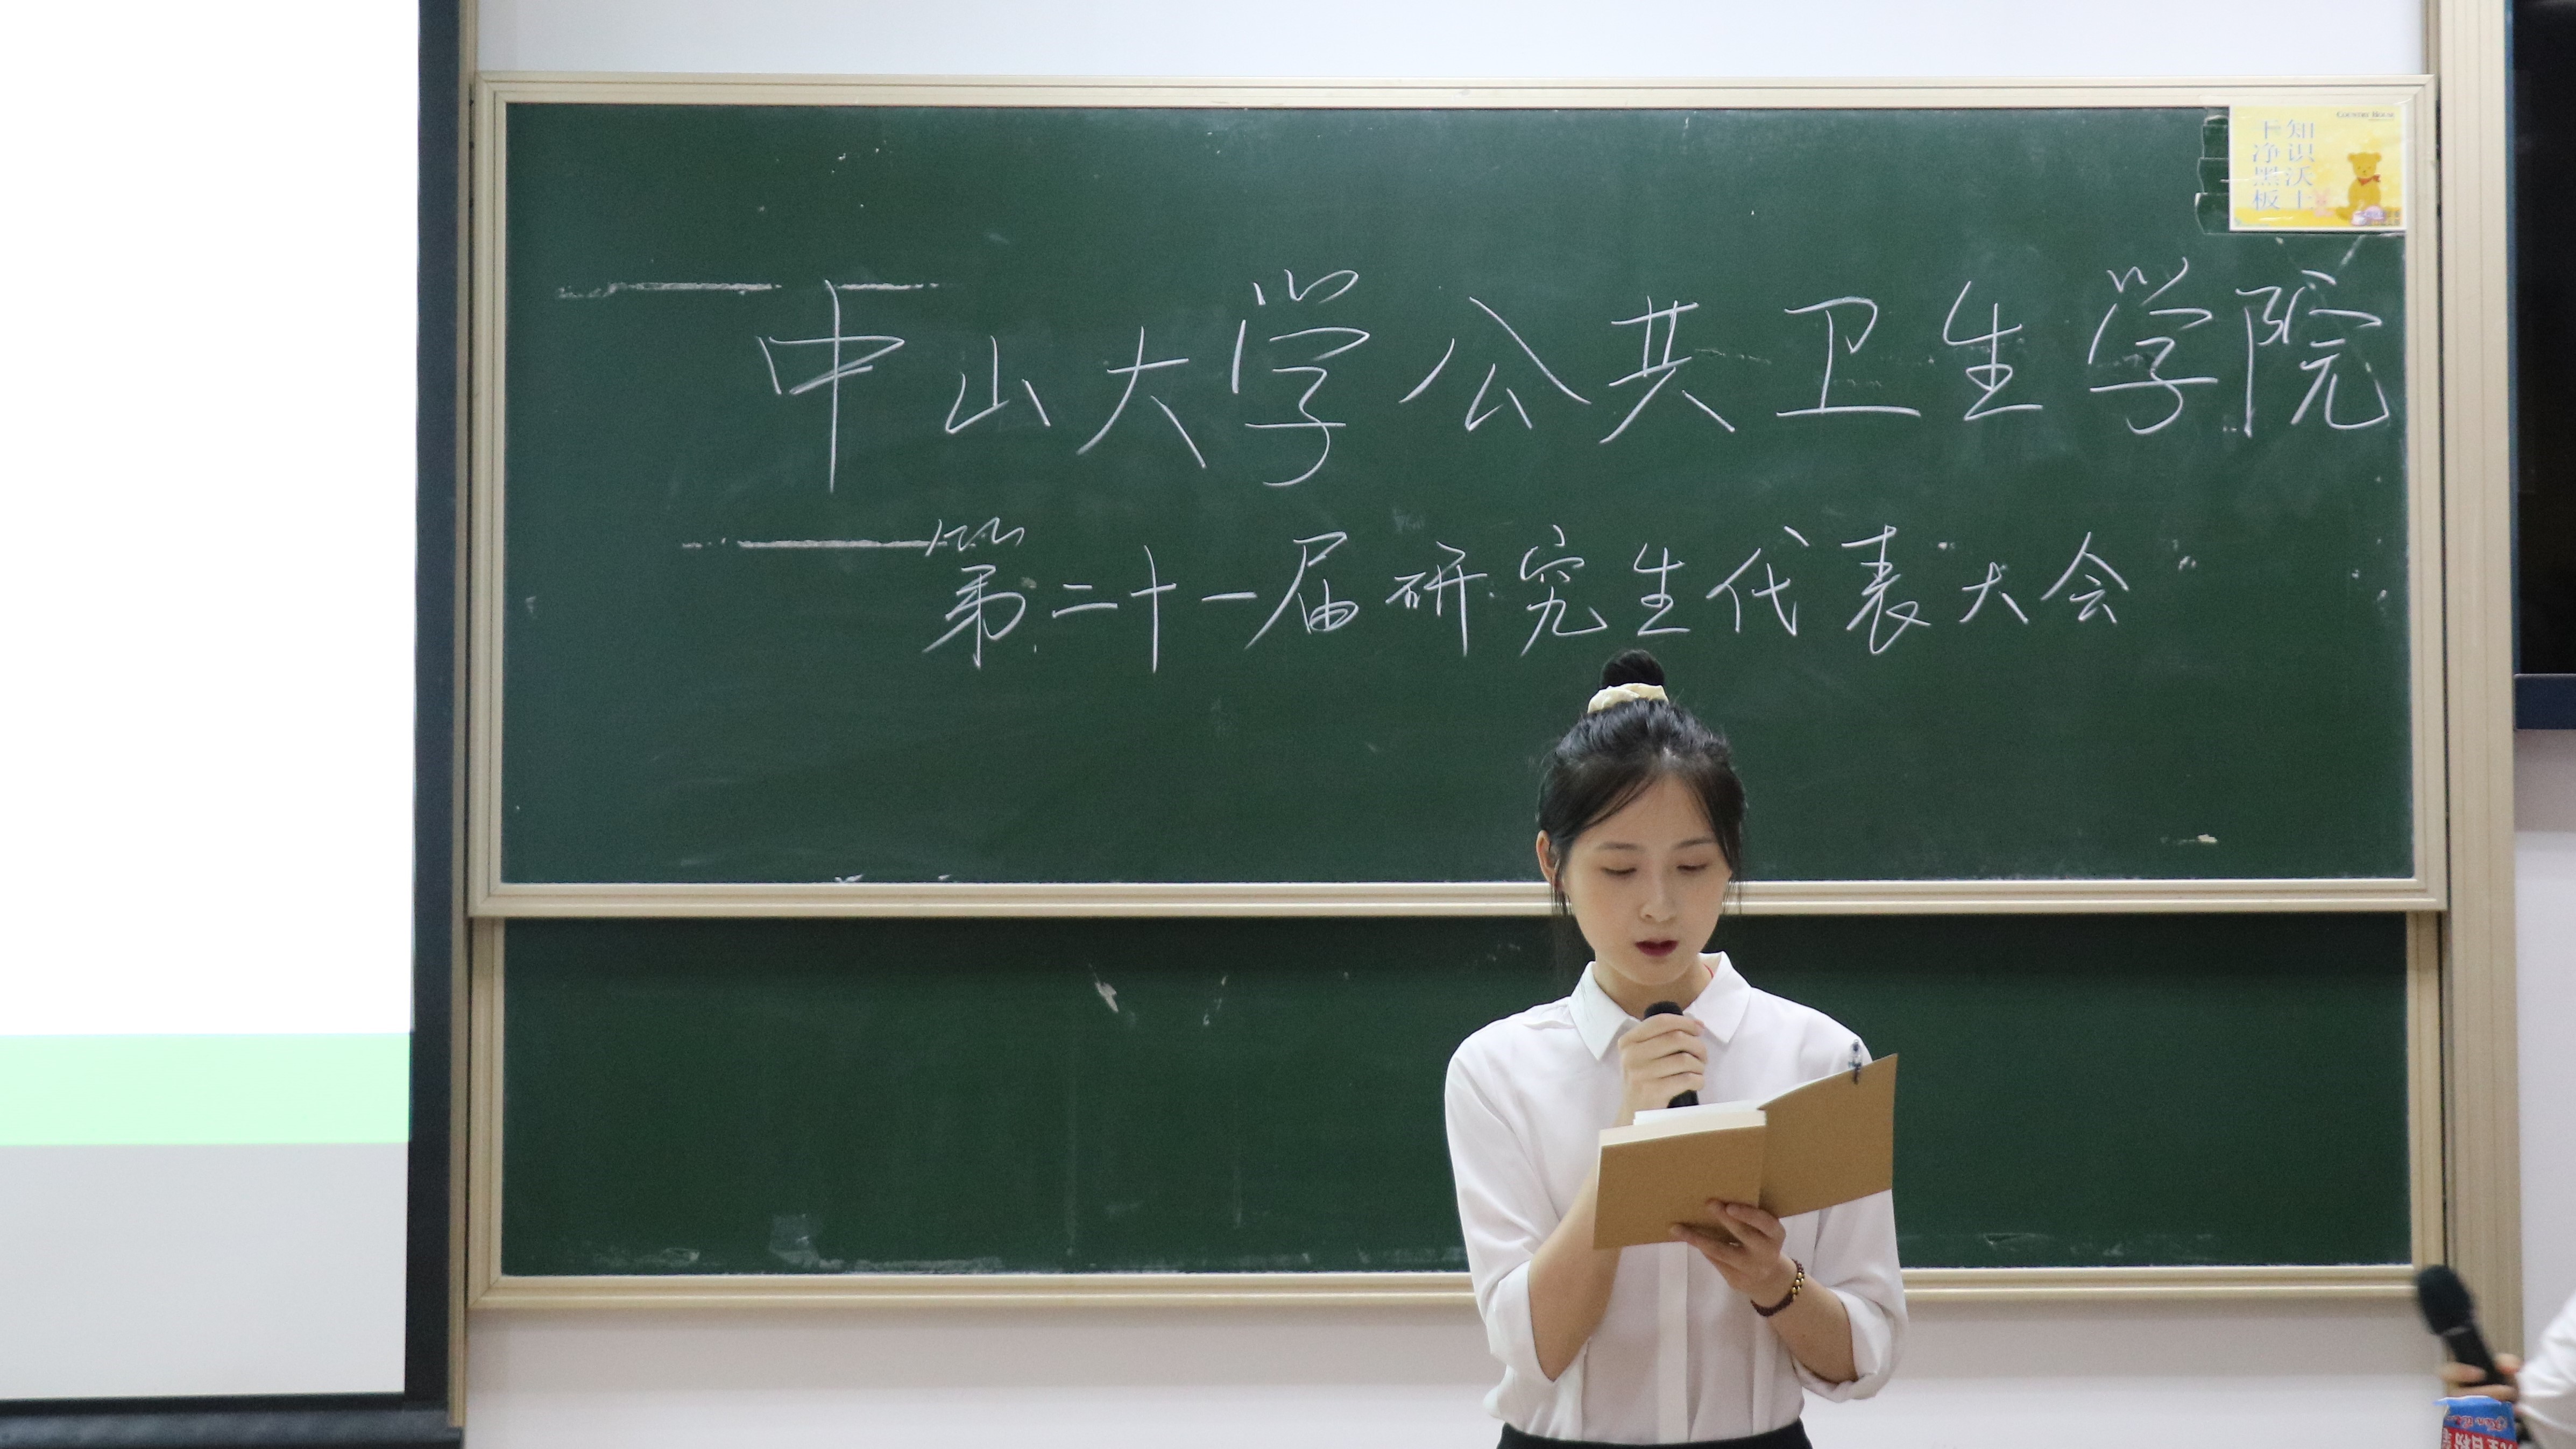 中山大学公共卫生学院
第二十一届研究生代表大会
COUNTRY HOUSE
知识沃土
干净黑板